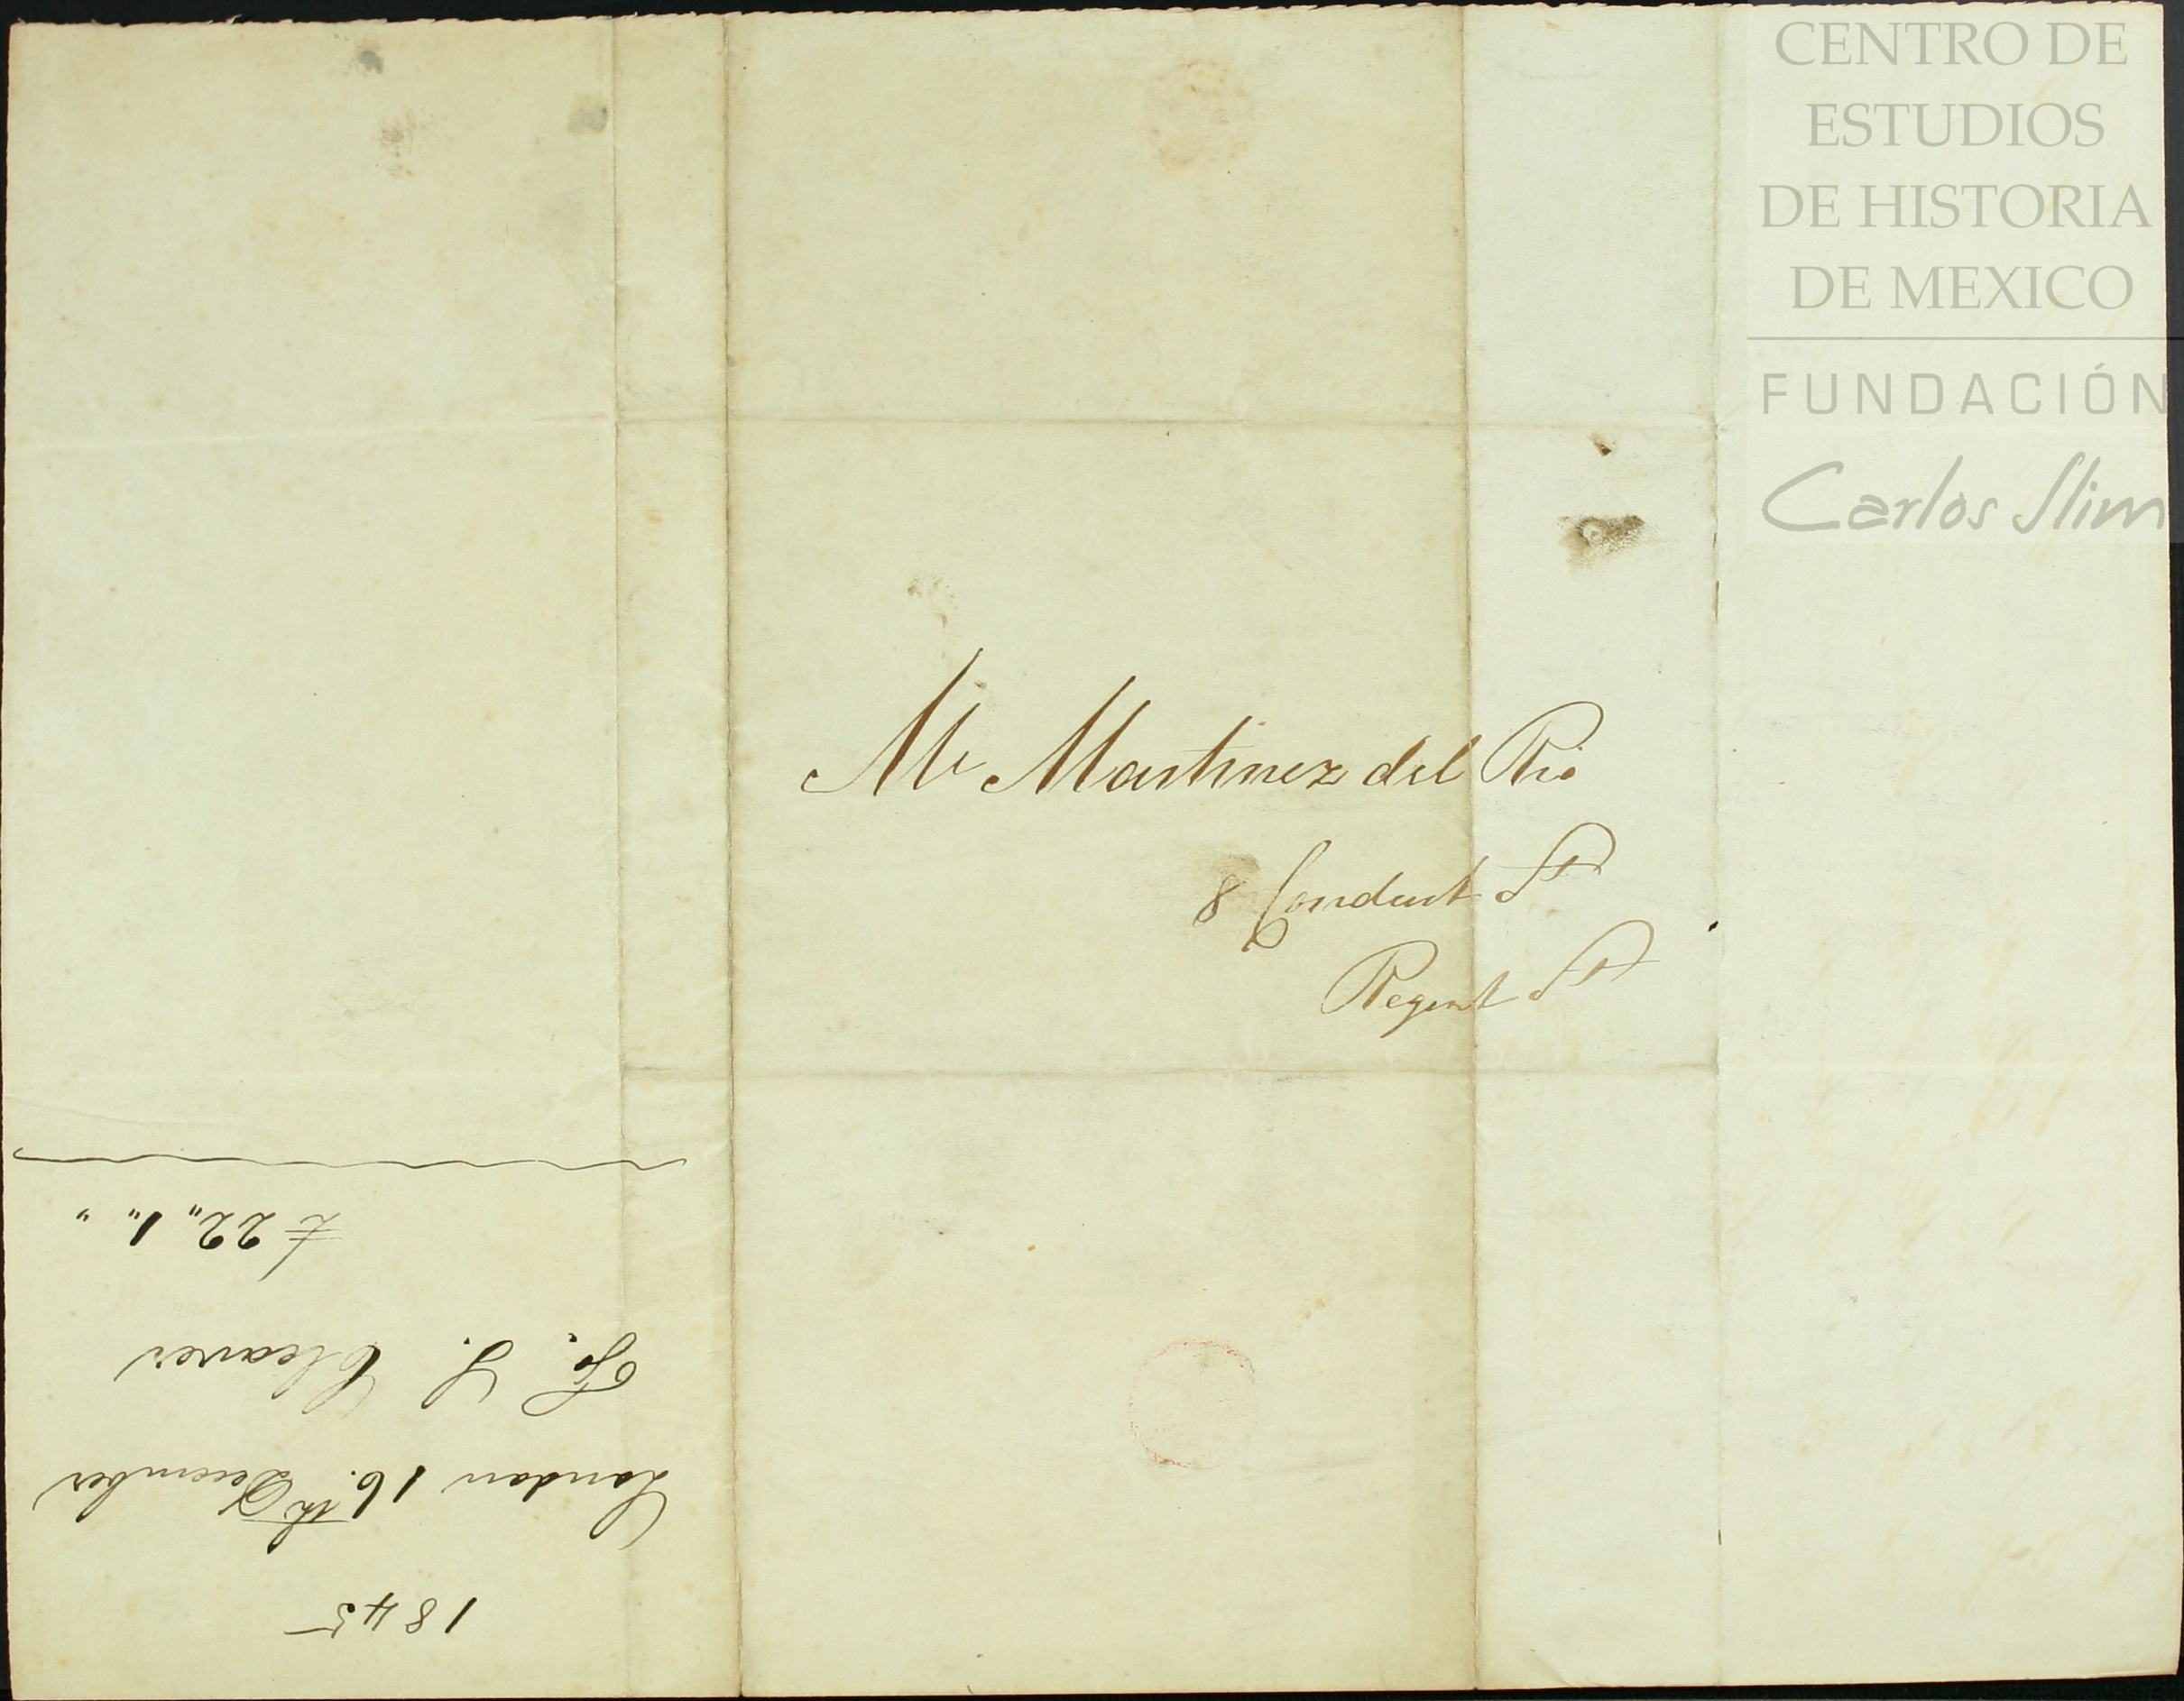 Mr Martinez del Rio
8 Conduit St
Regent St
1845
London 16th December
F. S. Cleaver
£22,, 1,, "
CENTRO DE
ESTUDIOS
DE HISTORIA
DE MEXICO
FUNDACIÓN
Carlos Slim